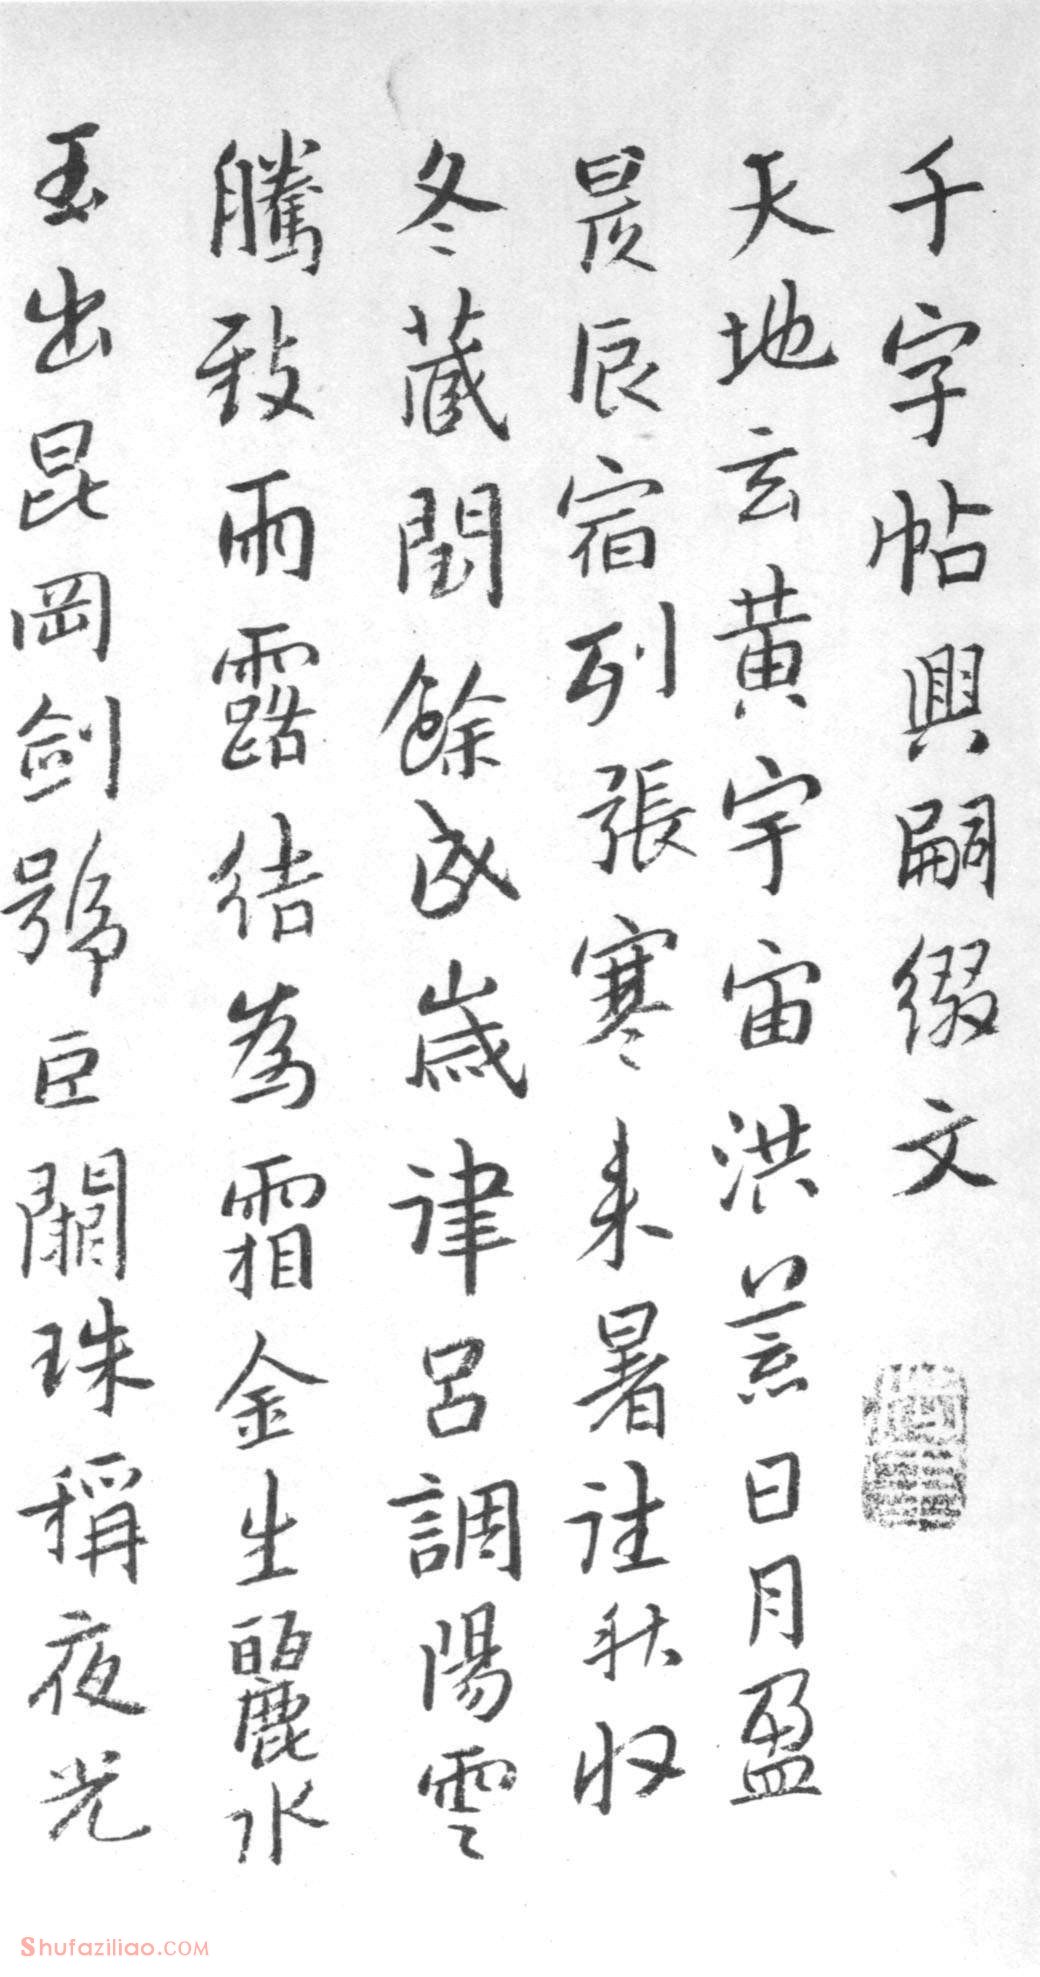 千字帖興嗣綴文
天地玄黃宇宙洪荒日月盈
昃辰宿列張寒来暑往秋収
冬藏閏餘成歲律呂調陽雲
騰致雨露结為霜金生麗水
玉出昆岡剑號巨闕珠稱夜光
Shufaziliao.COM